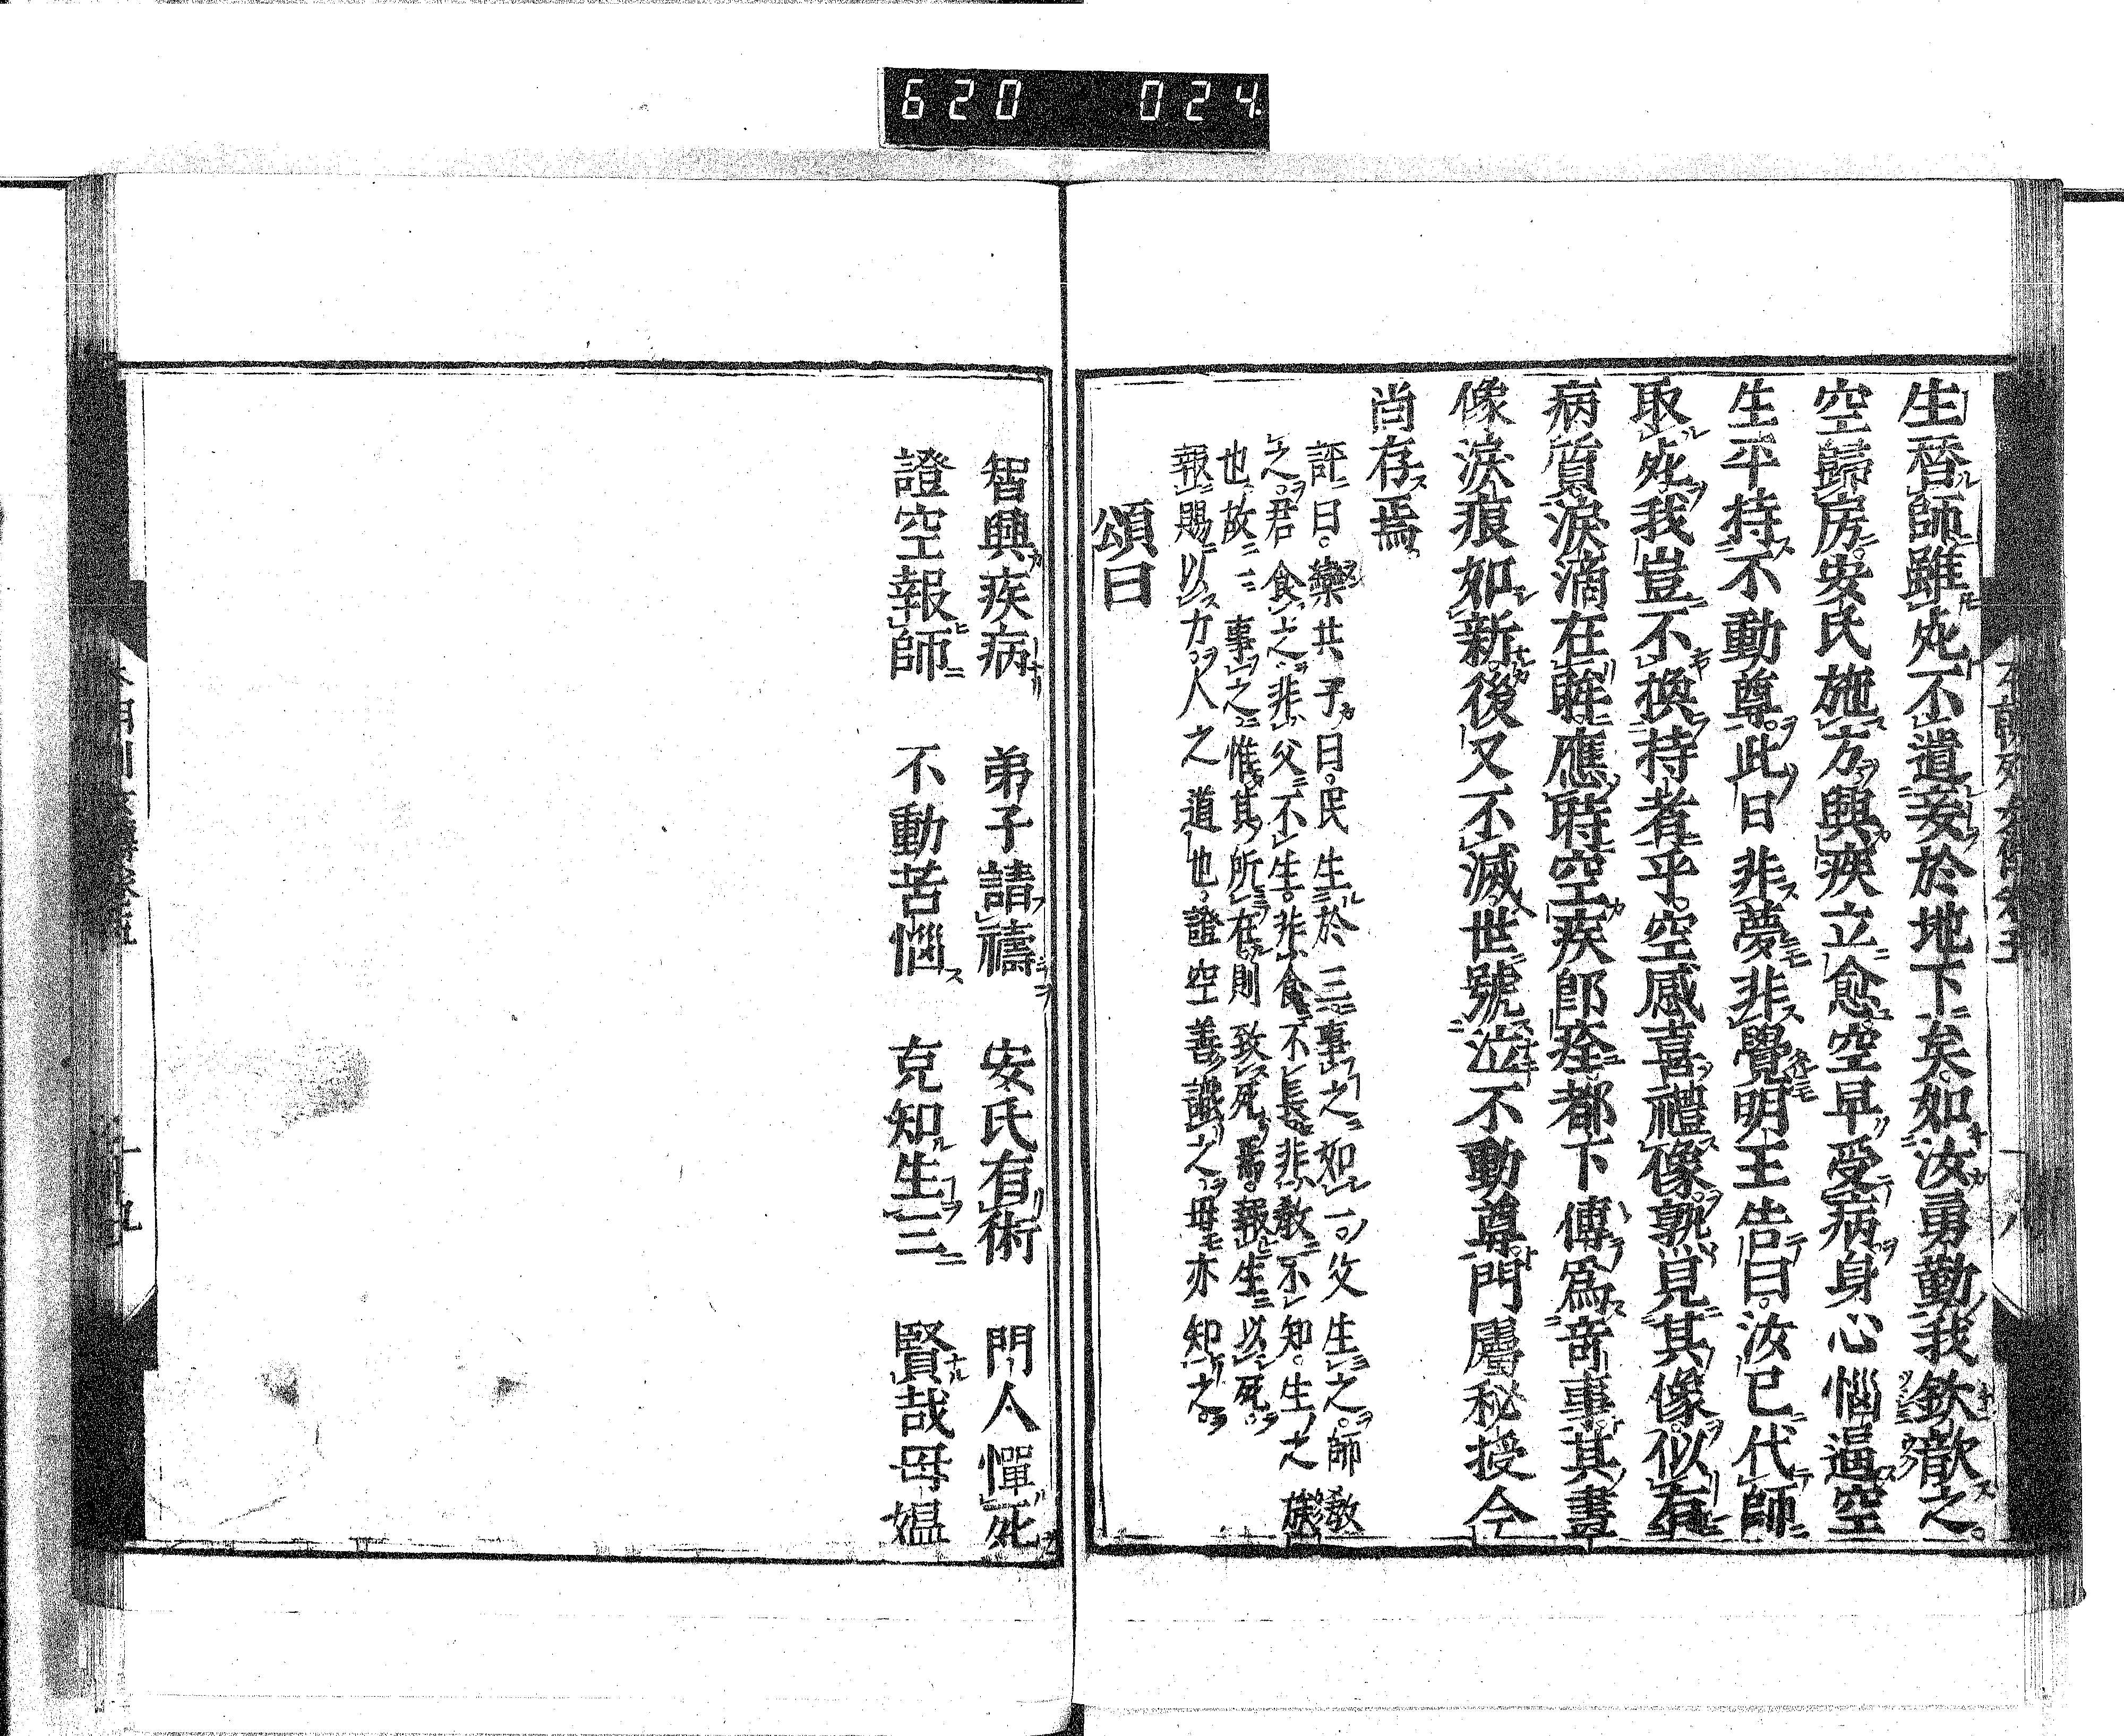 620 024
生替師雖死不遺妾於地下矣如汝勇勤我欽歆之
空歸房安氏施方興疾立愈空早受病身心惱逼空
生平持不動尊此日非夢非覺明王告曰汝已代師
取死我豈不換持者乎空感喜禮像孰見其像似有
病質淚滴在眸應時空疾即痊都下傳爲奇事其畫
像淚痕如新後又不滅世號泣不動尊門屬秘授今
尚存焉
評曰欒共子曰民生於三事之如一父生之師教
之君食之非父不生非食不長非教不知生之族
也故一事之惟其所在則致死焉報生以死
報賜以力人之道也證空善識之母亦知之
頌曰
智興疾病 弟子請禱 安氏有術 門人憚死
證空報師 不動苦惱 克知生三 賢哉母媼